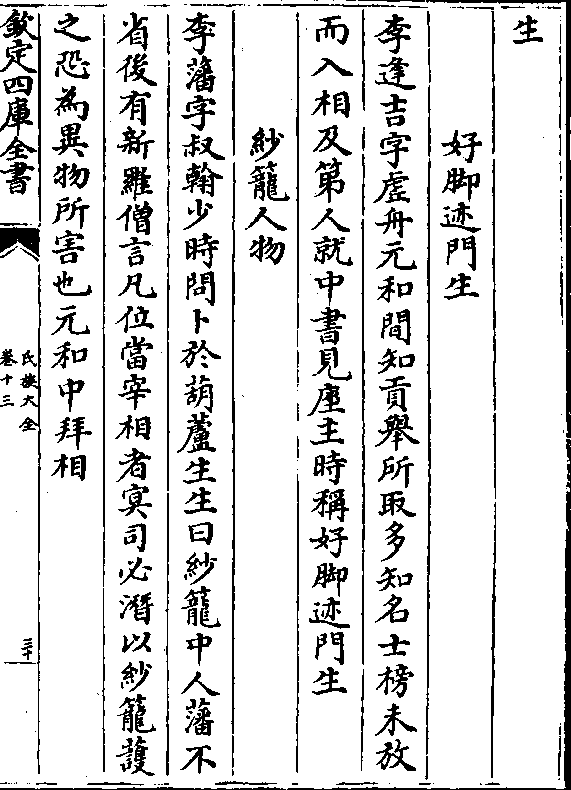 生
好脚迹門生
李逢吉字虛舟元和間知貢舉所取多知名士榜未放
而入相及第人就中書見座主時稱好脚迹門生
紗籠人物
李藩字叔翰少時問卜於葫蘆生生曰紗籠中人藩不
省後有新羅僧言凡位當宰相者冥司必潛以紗籠護
之恐為異物所害也元和中拜相
欽定四庫全書
氏族大全
卷十三